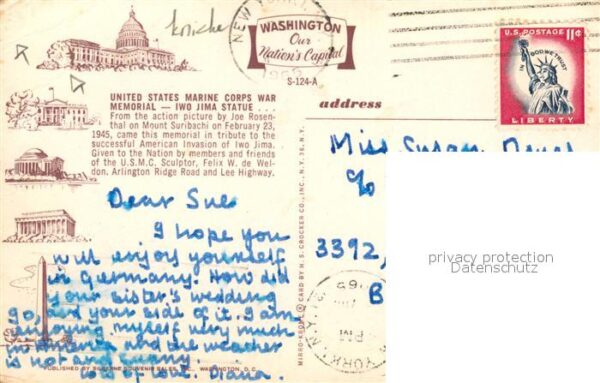 knicke
NEW YORK
WASHINGTON
Our
Nation's Capital
S-124-A
U.S. POSTAGE 11¢
IN GOD WE TRUST
LIBERTY
UNITED STATES MARINE CORPS WAR
MEMORIAL — IWO JIMA STATUE . . .
From the action picture by Joe Rosen-
thal on Mount Suribachi on February 23,
1945, came this memorial in tribute to the
successful American Invasion of Iwo Jima.
Given to the Nation by members and friends
of the U.S.M.C. Sculptor, Felix W. de Wel-
don, Arlington Ridge Road and Lee Highway.
address
Dear Sue
I hope you
will enjoy yourself
in Germany. How did
your sister's wedding
go, and your side of it. I am
enjoying myself very much
in America and the weather
is not any
Lots of love. Diana.
PUBLISHED BY SOUVENIR SALES, INC., WASHINGTON, D.C.
MIRRO-KROME ® CARD BY H. S. CROCKER CO., INC., N.Y., N.Y.
Miss Susan
c/o
3392,
B
YORK, N.Y.
PM
privacy protection
Datenschutz